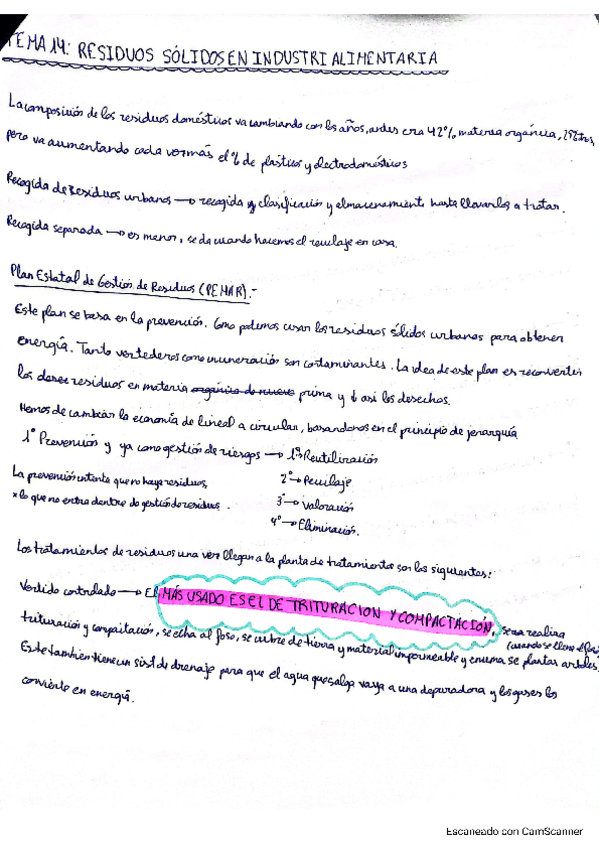 TEMA 14: RESIDUOS SÓLIDOS EN INDUSTRI ALIMENTARIA
La composición de los residuos domésticos va cambiando con los años, antes era 42% materia orgánica,
pero va aumentando cada vez más el % de plásticos y electrodomésticos
Recogida de Residuos urbanos → recogida y clasificación y almacenamient. hasta llevarlos a tratar.
Recogida separada → es menor, se da cuando hacemos el reciclaje en casa.
Plan Estatal de Gestión de Residuos (PEMAR).-
Este plan se basa en la prevención. Como podemos usar los residuos sólidos urbanos para obtener
energía. Tanto vertederos como incineración son contaminantes. La idea de este plan es reconvertir
los residuos en materia orgánica de nuevo prima y ↓ asi los desechos.
Hemos de cambiar la economía de lineal a circular, basandonos en el principio de jerarquía
1º Prevención y ya como gestión de riesgos → 1º Reutilización
La prevención intenta que no haya residuos, 2º → Reciclaje
* lo que no entra dentro de gestión de residuos. 3º → Valoración
4º → Eliminación.
Los tratamientos de residuos una vez llegan a la planta de tratamientos son los siguientes:
Vertido controlado → El MÁS USADO ES EL DE TRITURACION Y COMPACTACIÓN, se realiza
trituración y compactación, se echa al foso, se cubre de tierra y material impermeable y encima se plantas arboles. (cuando se llena el foso)
Este también tiene un sist de drenaje para que el agua que salga vaya a una depuradora y los gases los
convierte en energía.
Escaneado con CamScanner